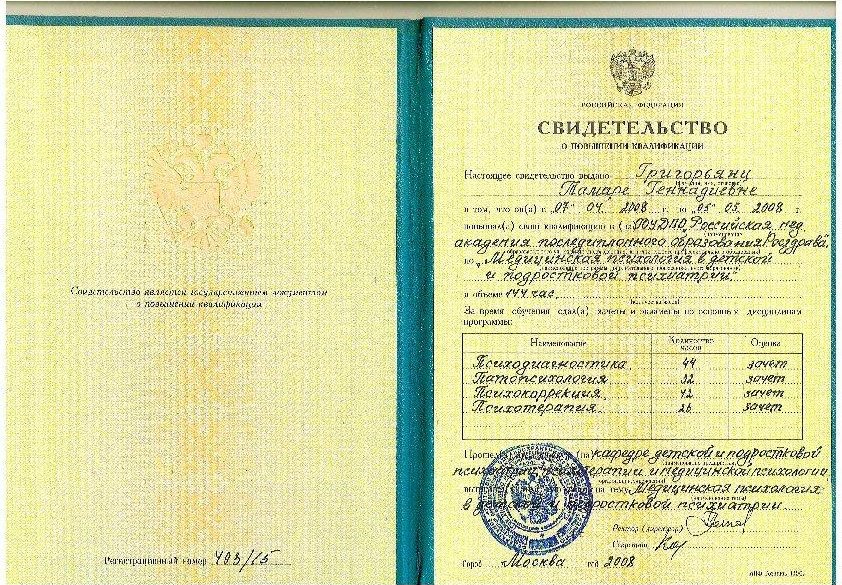 Свидетельство является государственным документом
о повышении квалификации
Регистрационный номер 493/15
РОССИЙСКАЯ ФЕДЕРАЦИЯ
СВИДЕТЕЛЬСТВО
О ПОВЫШЕНИИ КВАЛИФИКАЦИИ
Настоящее свидетельство выдано Григорьянц
Тамаре Геннадиевне
в том, что он(а) с "07" 04 2008 г. по "05" 05 2008 г.
повышал(а) свою квалификацию в (на) ГОУ ДПО "Российская мед.
академия последипломного образования Росздрава"
по "Медицинская психология в детской
и подростковой психиатрии"
в объеме 144 час.
(количество часов)
За время обучения сдал(а) зачеты и экзамены по основным дисциплинам
программы:
Наименование Количество часов Оценка
Психодиагностика. 44 зачет
Патопсихология 32 зачет
Психокоррекция. 42 зачет
Психотерапия. 26 зачет
(на) кафедре детской и подростковой
психиатрии, психотерапии и медицинской психологии
на тему Медицинская психология
в детской и подростковой психиатрии
Ректор (директор)
Секретарь
Город Москва год 2008